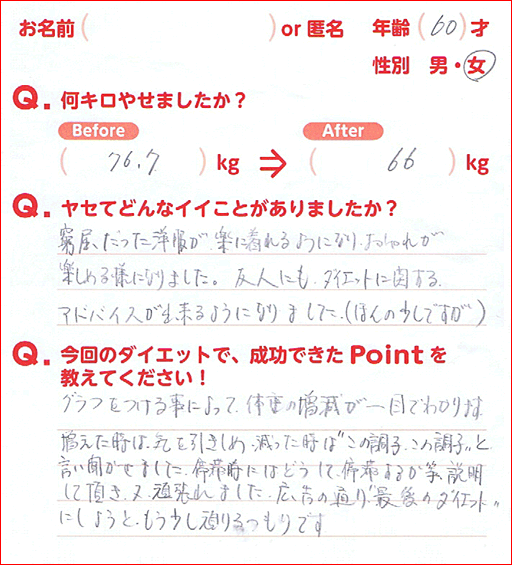 お名前（　　　　　）or 匿名　年齢（60）才
性別　男・女
Q. 何キロやせましたか？
Before　After
（　76.7　）kg ⇒ （　66　）kg
Q. ヤセてどんなイイことがありましたか？
窮屈だった洋服が、楽に着れるようになり、おしゃれが
楽しめる様になりました。友人にも、ダイエットに関する
アドバイスが出来るようになりました。（ほんの少しですが）
Q. 今回のダイエットで、成功できた Point を
教えてください！
グラフをつける事によって、体重の増減が一目でわかります
増えた時は、気を引きしめ、減った時は“この調子、この調子”と
言い聞かせました。停滞時にはどうして、停滞するか等、説明
して頂き、又、頑張れました。広告の通り“最後のダイエット”
にしようと、もう少し頑張るつもりです